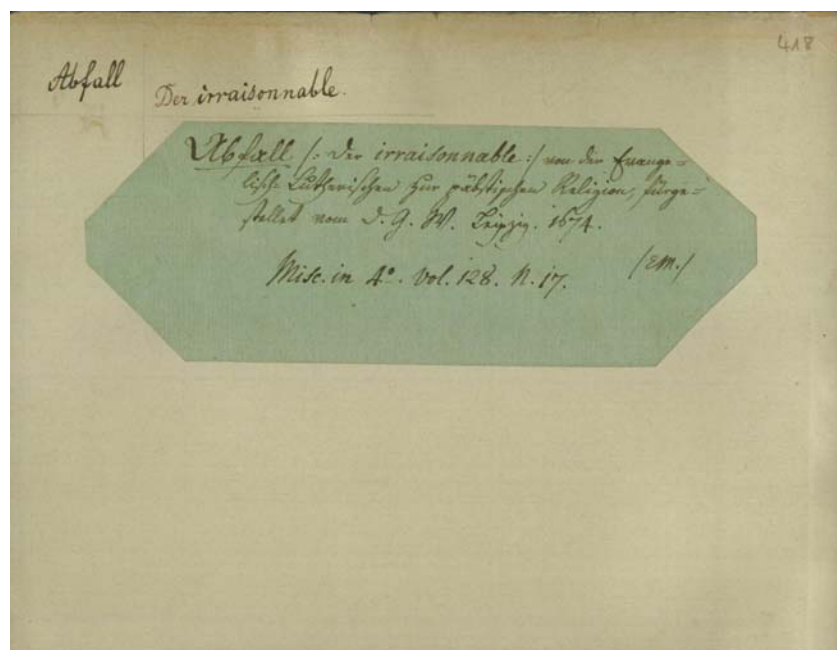 418
Abfall
Der irraisonnable.
Abfall /: Der irraisonnable :/ von der Evange=
lisch Lutherischen zur päbstischen Religion, fürge=
stellet vom D. G. W. Leipzig. 1674.
Misc. in 4º. Vol. 128. N. 17. /EM./